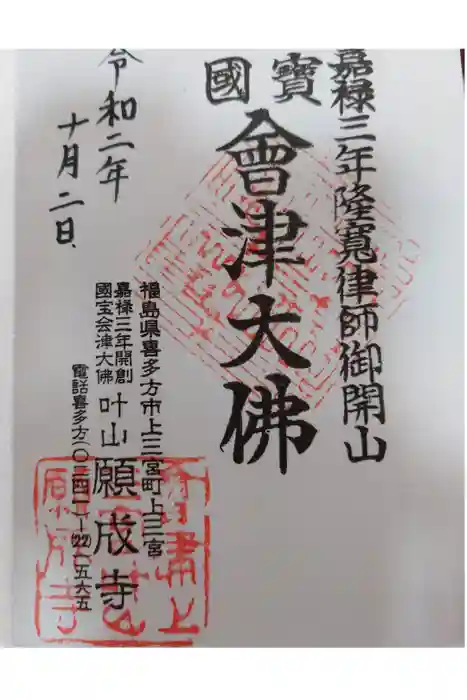 嘉禄三年隆寛律師御開山
國寶
會津大佛
福島県喜多方市上三宮町上三宮
嘉禄三年開創
國宝会津大佛
叶山 願成寺
電話喜多方(〇二四一)-(22)一五六五
令和二年
十月二日
願成寺